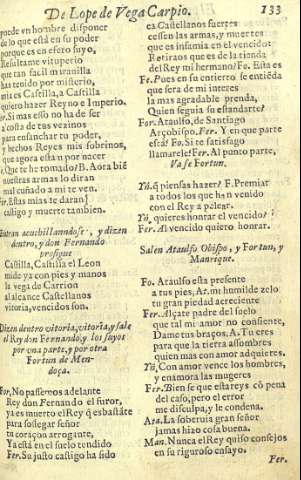 De Lope de Vega Carpio.
133
puede vn hombre disponer
de lo que está en su poder
porque es en esfero suyo,
Resultame vituperio
que tan facil marauilla
has tenido por misterio,
mia es Castilla, a Castilla
quiero hazer Reyno e Imperio.
Fer. Si mas esso no ha de ser
a costa de tus vezinos
para ensanchar tu poder,
y hechos Reyes mis sobrinos,
que agora estan por nacer
Que te he tomado? B. Aora biē
nuestras armas lo diran
mi cuñado a mi te ven.
Fer. Estas mias te daran
castigo y muerte tambien.
Entran acuchillandose, y dizen
dentro, y don Fernando
prosigue
Castilla, Castilla el Leon
mide ya con pies y manos
la vega de Carrion
al alcance Castellanos
vitoria, vencidos son.
Dizen dentro vitoria, vitoria, y sale
el Rey don Fernando, y los suyos
por vna parte, y por otra
Fortun de Men-
doça.
For. No passemos adelante
Rey don Fernando el furor,
ya es muerto el Rey q̃ es bastāte
para sossegar señor
tu coraçon arrogante,
Ya está en el suelo tendido
Fer. Su justo castigo ha sido
ea Castellanos fuertes
cessen las armas, y muertes
que es infamia en el vencido:
Retiraos que es de la tienda
del Rey mi hermano? Fo. Esta es
Fe. Pues en su entierro se entiēda
que sera de mi interes
la mas agradable prenda,
Quien seguia su estandarte?
For. Ataulfo, de Santiago
Arçobispo. Fer. Y en que parte
está? Fo. Si te satisfago
llamarele? Fer. Al punto parte,
Vase Fortun.
Tū. q̃ piensas hazer? F. Premiar
a todos los que han venido
con el Rey a pelear.
Tū, quieres honrar el vencido?
Fer. Al vencido quiero honrar.
Salen Ataulfo Obispo, y Fortun, y
Manrique.
Fo. Ataulfo esta presente
a tus pies, At. mi humilde zelo
tu gran piedad acreciente
Fer. Alçate padre del suelo
que tal mi amor no consiente,
Dame tus braços, A. Tu eres
para que la tierra assombres
quien mas con amor adquieres.
Tū, Con amor vence los hombres,
y enamora las mugeres
Fer. Bien se que estareys cō pena
del caso, pero el error
me disculpa, y le condena.
Ara. La soberuia gran señor
jamas hizo cosa buena.
Man. Nunca el Rey quiso consejos
en su riguroso ensayo.
Fer.